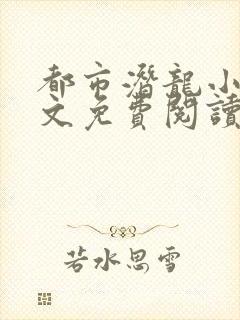 都市潛龍小
文免費閱讀
若水思雪